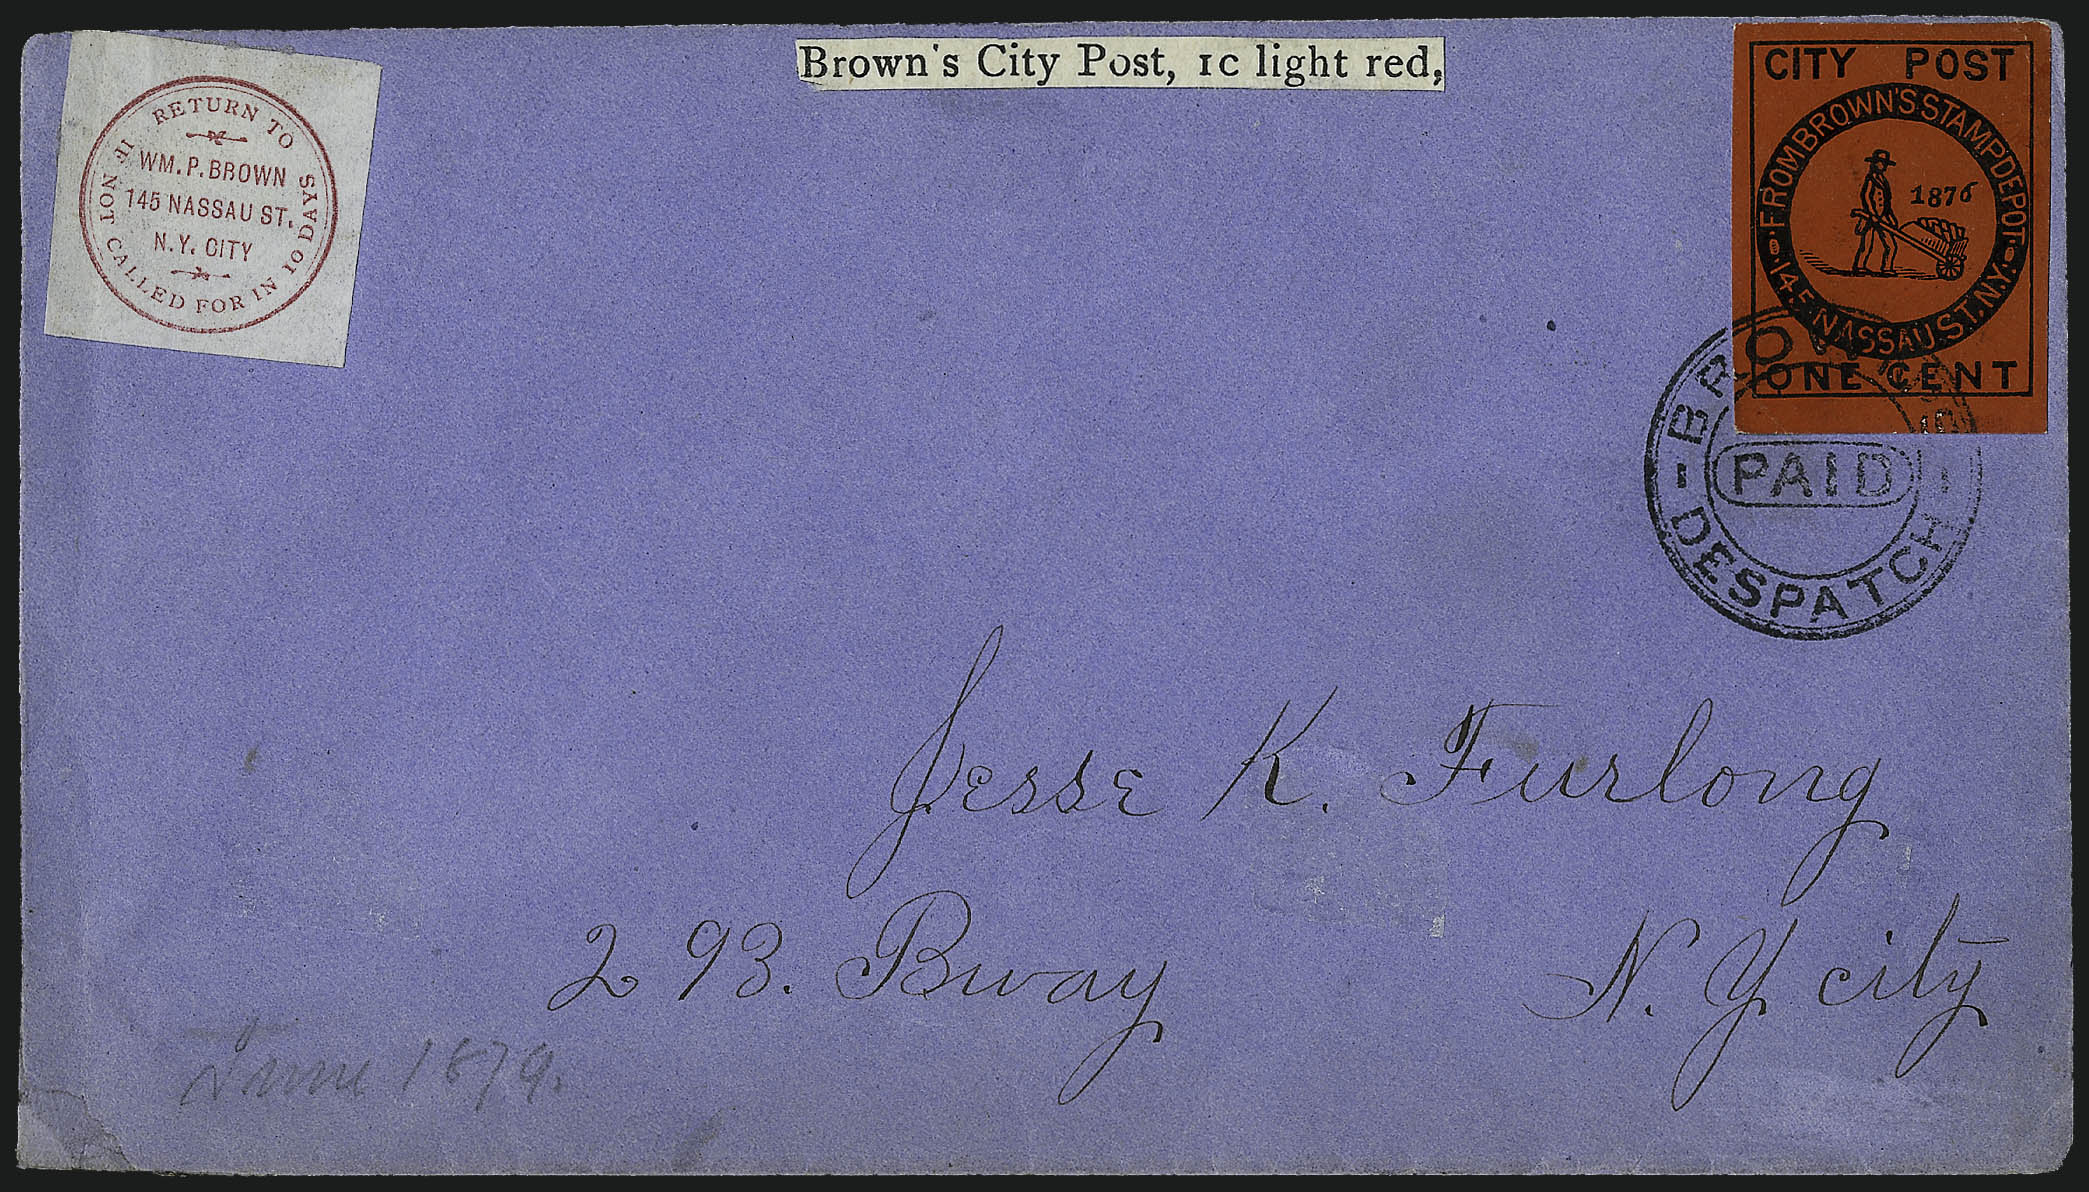 RETURN TO
WM. P. BROWN
145 NASSAU ST.
N.Y. CITY
IF NOT CALLED FOR IN 10 DAYS
Brown's City Post, 1c light red,
CITY POST
FROM BROWN'S STAMP DEPOT
1876
145 NASSAU ST. N.Y.
ONE CENT
BROWN'S
PAID
DESPATCH
Jesse K. Furlong
293. Bway N.Y city
June 1879.